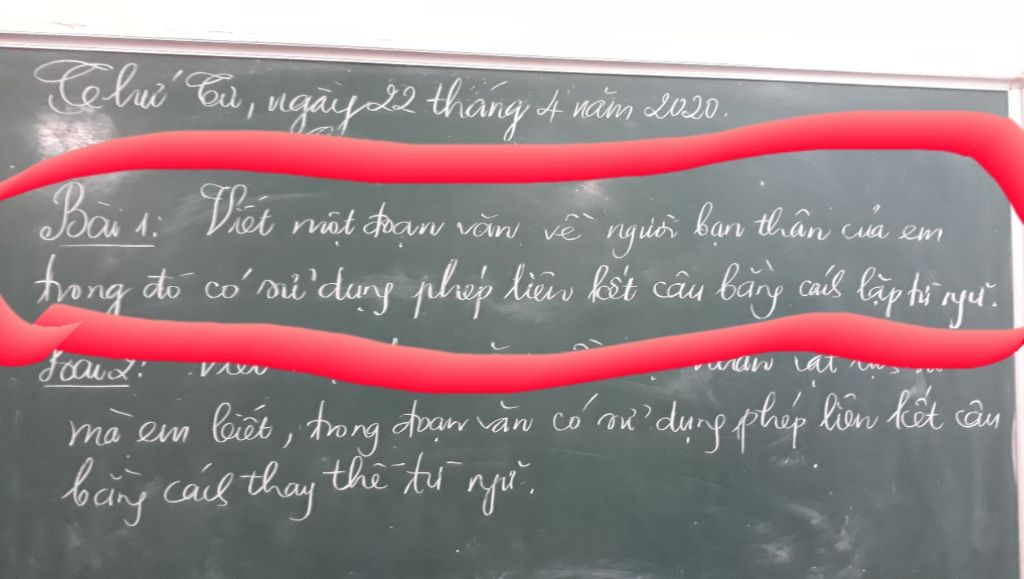 Thứ Tư, ngày 22 tháng 4 năm 2020.
Bài 1: Viết một đoạn văn về người bạn thân của em
trong đó có sử dụng phép liên kết câu bằng cách lặp từ ngữ.
Bài 2: Viết
mà em biết, trong đoạn văn có sử dụng phép liên kết câu
bằng cách thay thế từ ngữ.